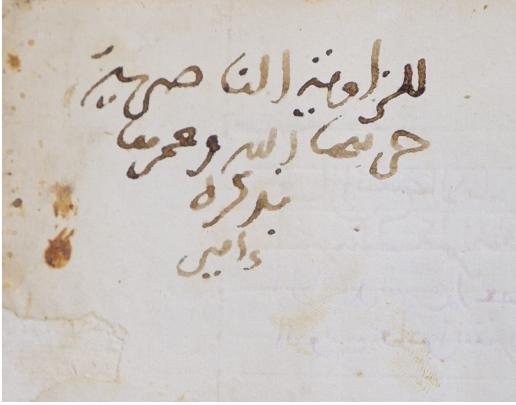 للزاوية الناصرية
حرسها الله وعمرها
بذكره
ءامين